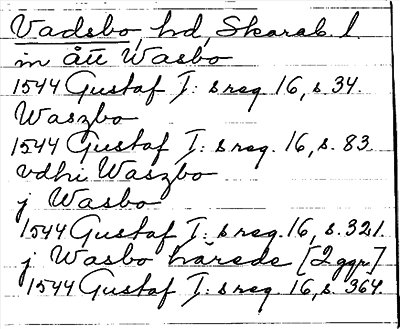 Vadsbo, hd, Skarab. l.
in ått Wasbo
1544 Gustaf I: s reg. 16, s. 34.
Waszbo
1544 Gustaf I: s reg. 16, s. 83.
vdhi Waszbo
j Wasbo
1544 Gustaf I: s reg. 16, s. 321.
j Wasbo härede [2 ggr]
1544 Gustaf I: s reg. 16, s. 364.